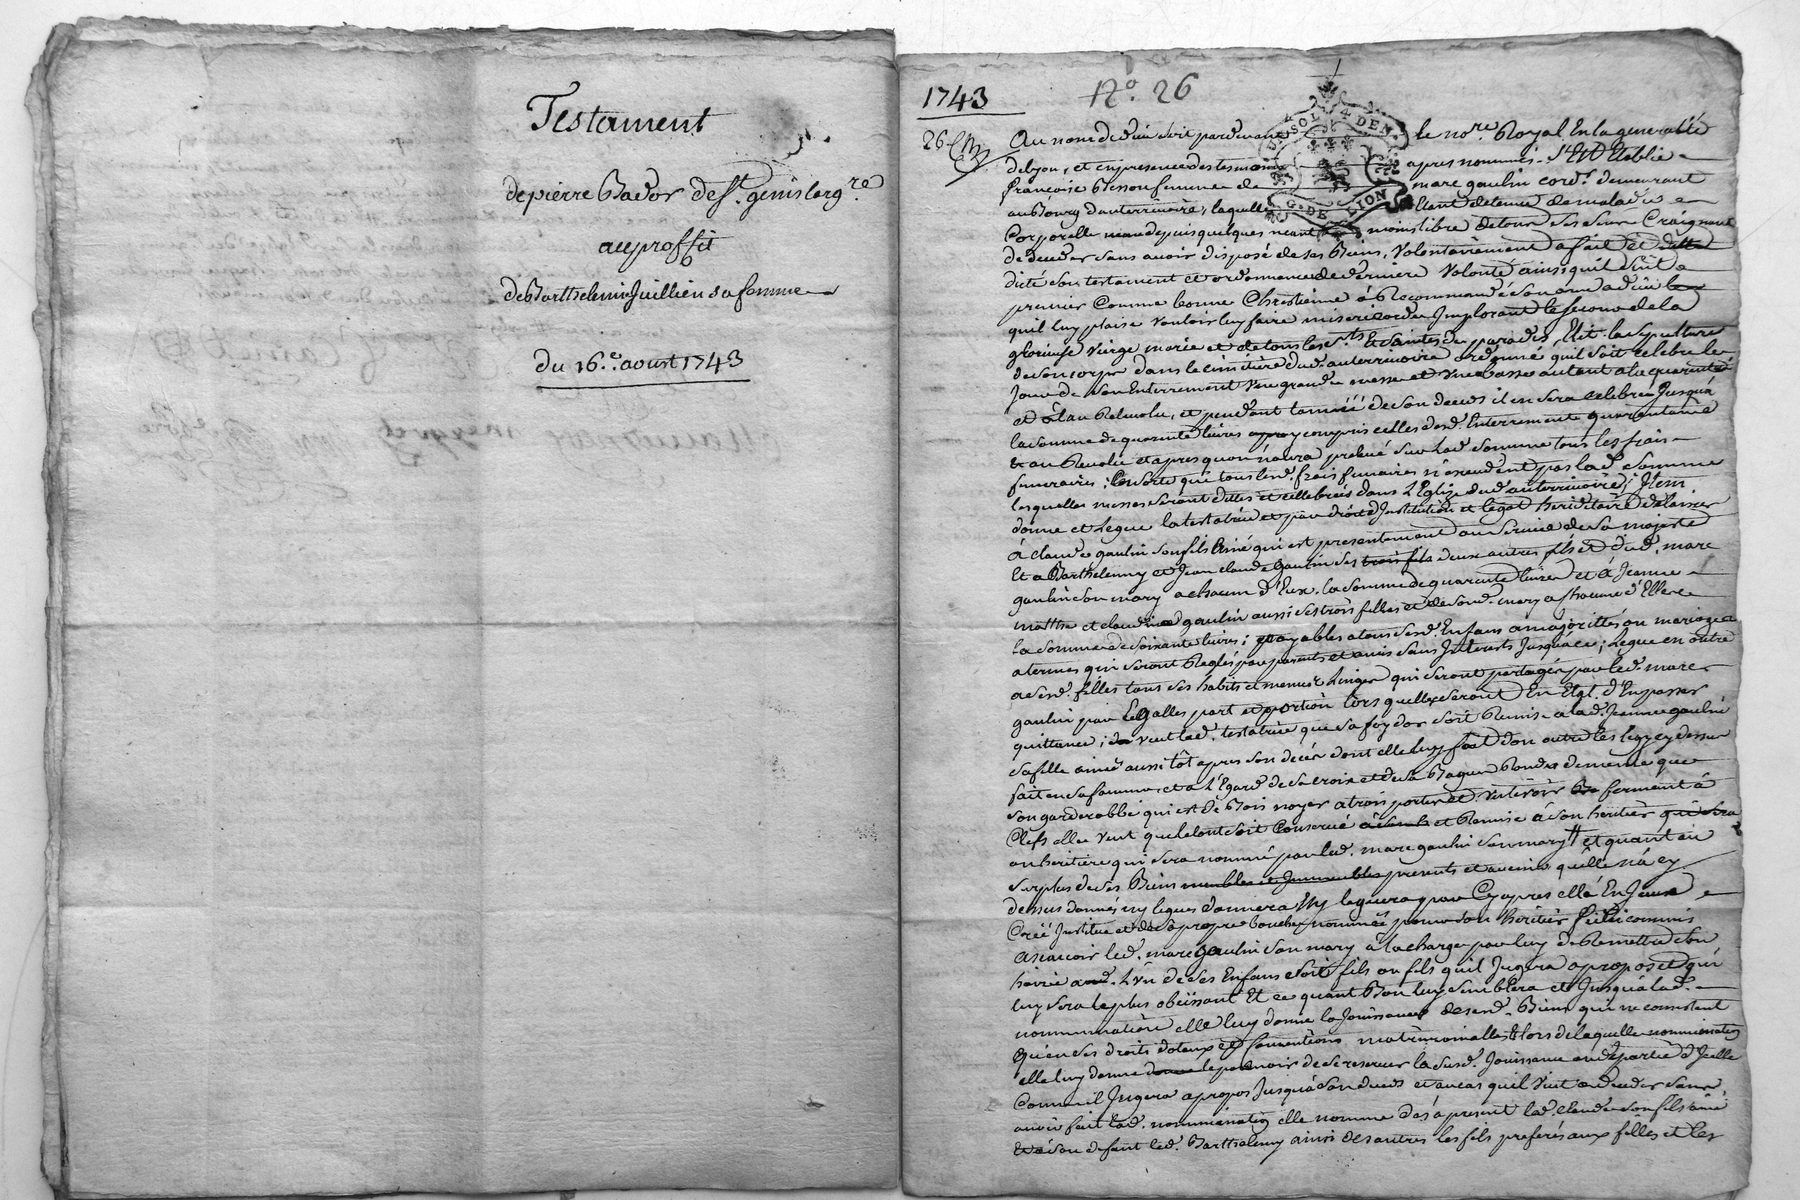 Testament
de pierre Bador de St. genis largre
au proffit
de Barthelemie Juillien sa femme
du 16e. aoust 1743
1743
No. 26
26
SOL 4 DEN
G. DE LION
Au nom de dieu soit pardevant le nore. Royal En la generallité
de lyon, et en presence des temoins apres nommés. S'Est Etablie
françoise Besson femme de marc gaulin cord. demeurant
au Bourg d'auterivoire, laquelle Etant detenue de maladie
Corporelle neant moins libre de tous ses sens Craignant
de deceder sans avoir disposé de ses Biens, Volontairement a fait et
dicté son testament et ordonnance de derniere Volonté ainsi quil suit
premier Comme bonne Chrestienne à Recommandé son ame a dieu
quil luy plaise vouloir luy faire misericorde Implorant le secours de la
glorieuse vierge marie et de tous les sts. Et saintes du paradis, Elit la sepulture
de son corps dans le cimitière dud. auterivoire ordonné quil soit celebré le
Jour de son Enterrement Une grande messe et Une basse autant a la quarantaine
et a la Revolu, et pendant l'année de son deceds il en sera celebré Jusquá
la somme de quarante livres y compris celles desd. Enterrement quarantaine
& au Revolu et apres quon naura prelevé sur lad. somme tous les frais
funeraires; Ensorte que tous lesd. frais funaires n'excedent pas lad. somme
lesquelles messes seront dittes et cellebrées dans L'Eglise dud. auterivoire; Item
donne et Legue la testatrice et par droit d'Institution et legat hereditaire delaisser
à claude gaulin son fils Ainé qui est presentement au service de sa majesté
Et a Barthelemy et Jean claude Gaulin ses trois fils deux autres fils et dud. marc
gaulin son mary a chacun d'Eux la somme de quarante livres et à Jeanne
marthe et claudine gaulin aussi ses trois filles et de sond. mary a chacune d'Elles
la somme de soixante livres; payables a tous sesd. Enfans a majorittés ou mariage
a termes qui seront Reglés par parents et amis sans Interests Jusquá ce; Legue en outre
a sesd. filles tous ses habits et menus Linges qui seront partagés par led. marc
gaulin par Egalles part et portion lors quelles seront En Etat d'En passer
quittance; veut lad. testatrice que sa foy d'or soit Remise a lad. Jeanne gaulin
sa fille ainée aussi tôt apres son decés dont elle luy fait don outre les legs cy dessus
fait en sa faveur et a L'Egard de sa croix et de sa Bague Ronde de meme que
son garderobbe qui est de Bois noyer a trois portes et tiroir fermant à
Clefs elle veut que le tout soit Conservé et Remise à son heritier qui sera
ou heritiere qui sera nommé par led. marc gaulin son mary et quant au
surplus de ses Biens meubles et Immeubles presents et avenirs quelle ná cy
dessus donnés ny legués donnera ny leguera par Cy apres elle En a
Créé Institué et de sa propre bouche nommée pour son heritier fidei commis
a scavoir led. marc gaulin son mary à la charge par luy de Remettre son
hoirie a L'Un de ses Enfans soit fils ou fils quil Jugera a propos et qui
luy sera le plus obeissant Et ce quant Bon luy semblera et Jusquá lad.
nommination elle luy donne la Jouissance de sesd. Biens qui ne consistent
quen ses droits dotaux et Conventions matrimonialles lors de laquelle nommination
elle luy donne le pouvoir de se reserver la susd. Jouissance ou partie d'Icelle
Comme il Jugera a propos Jusquá son deceds et au cas quil vint a deceder sans
avoir fait lad. nommination elle nomme dés á present led. claude son fils ainé
et á son defaut led. Barthelemy ainsi des autres les fils preferés aux filles et les